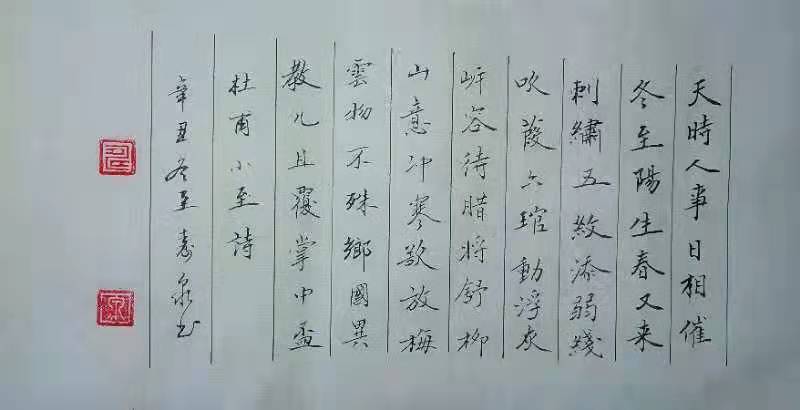 天時人事日相催
冬至陽生春又来
刺繡五紋添弱綫
吹葭六琯動浮灰
岸容待腊将舒柳
山意冲寒欲放梅
雲物不殊鄉國異
教儿且覆掌中盃
杜甫小至詩
辛丑冬至寿泉书